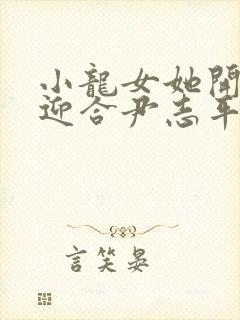 小龍女她開
迎合尹志平
言笑晏